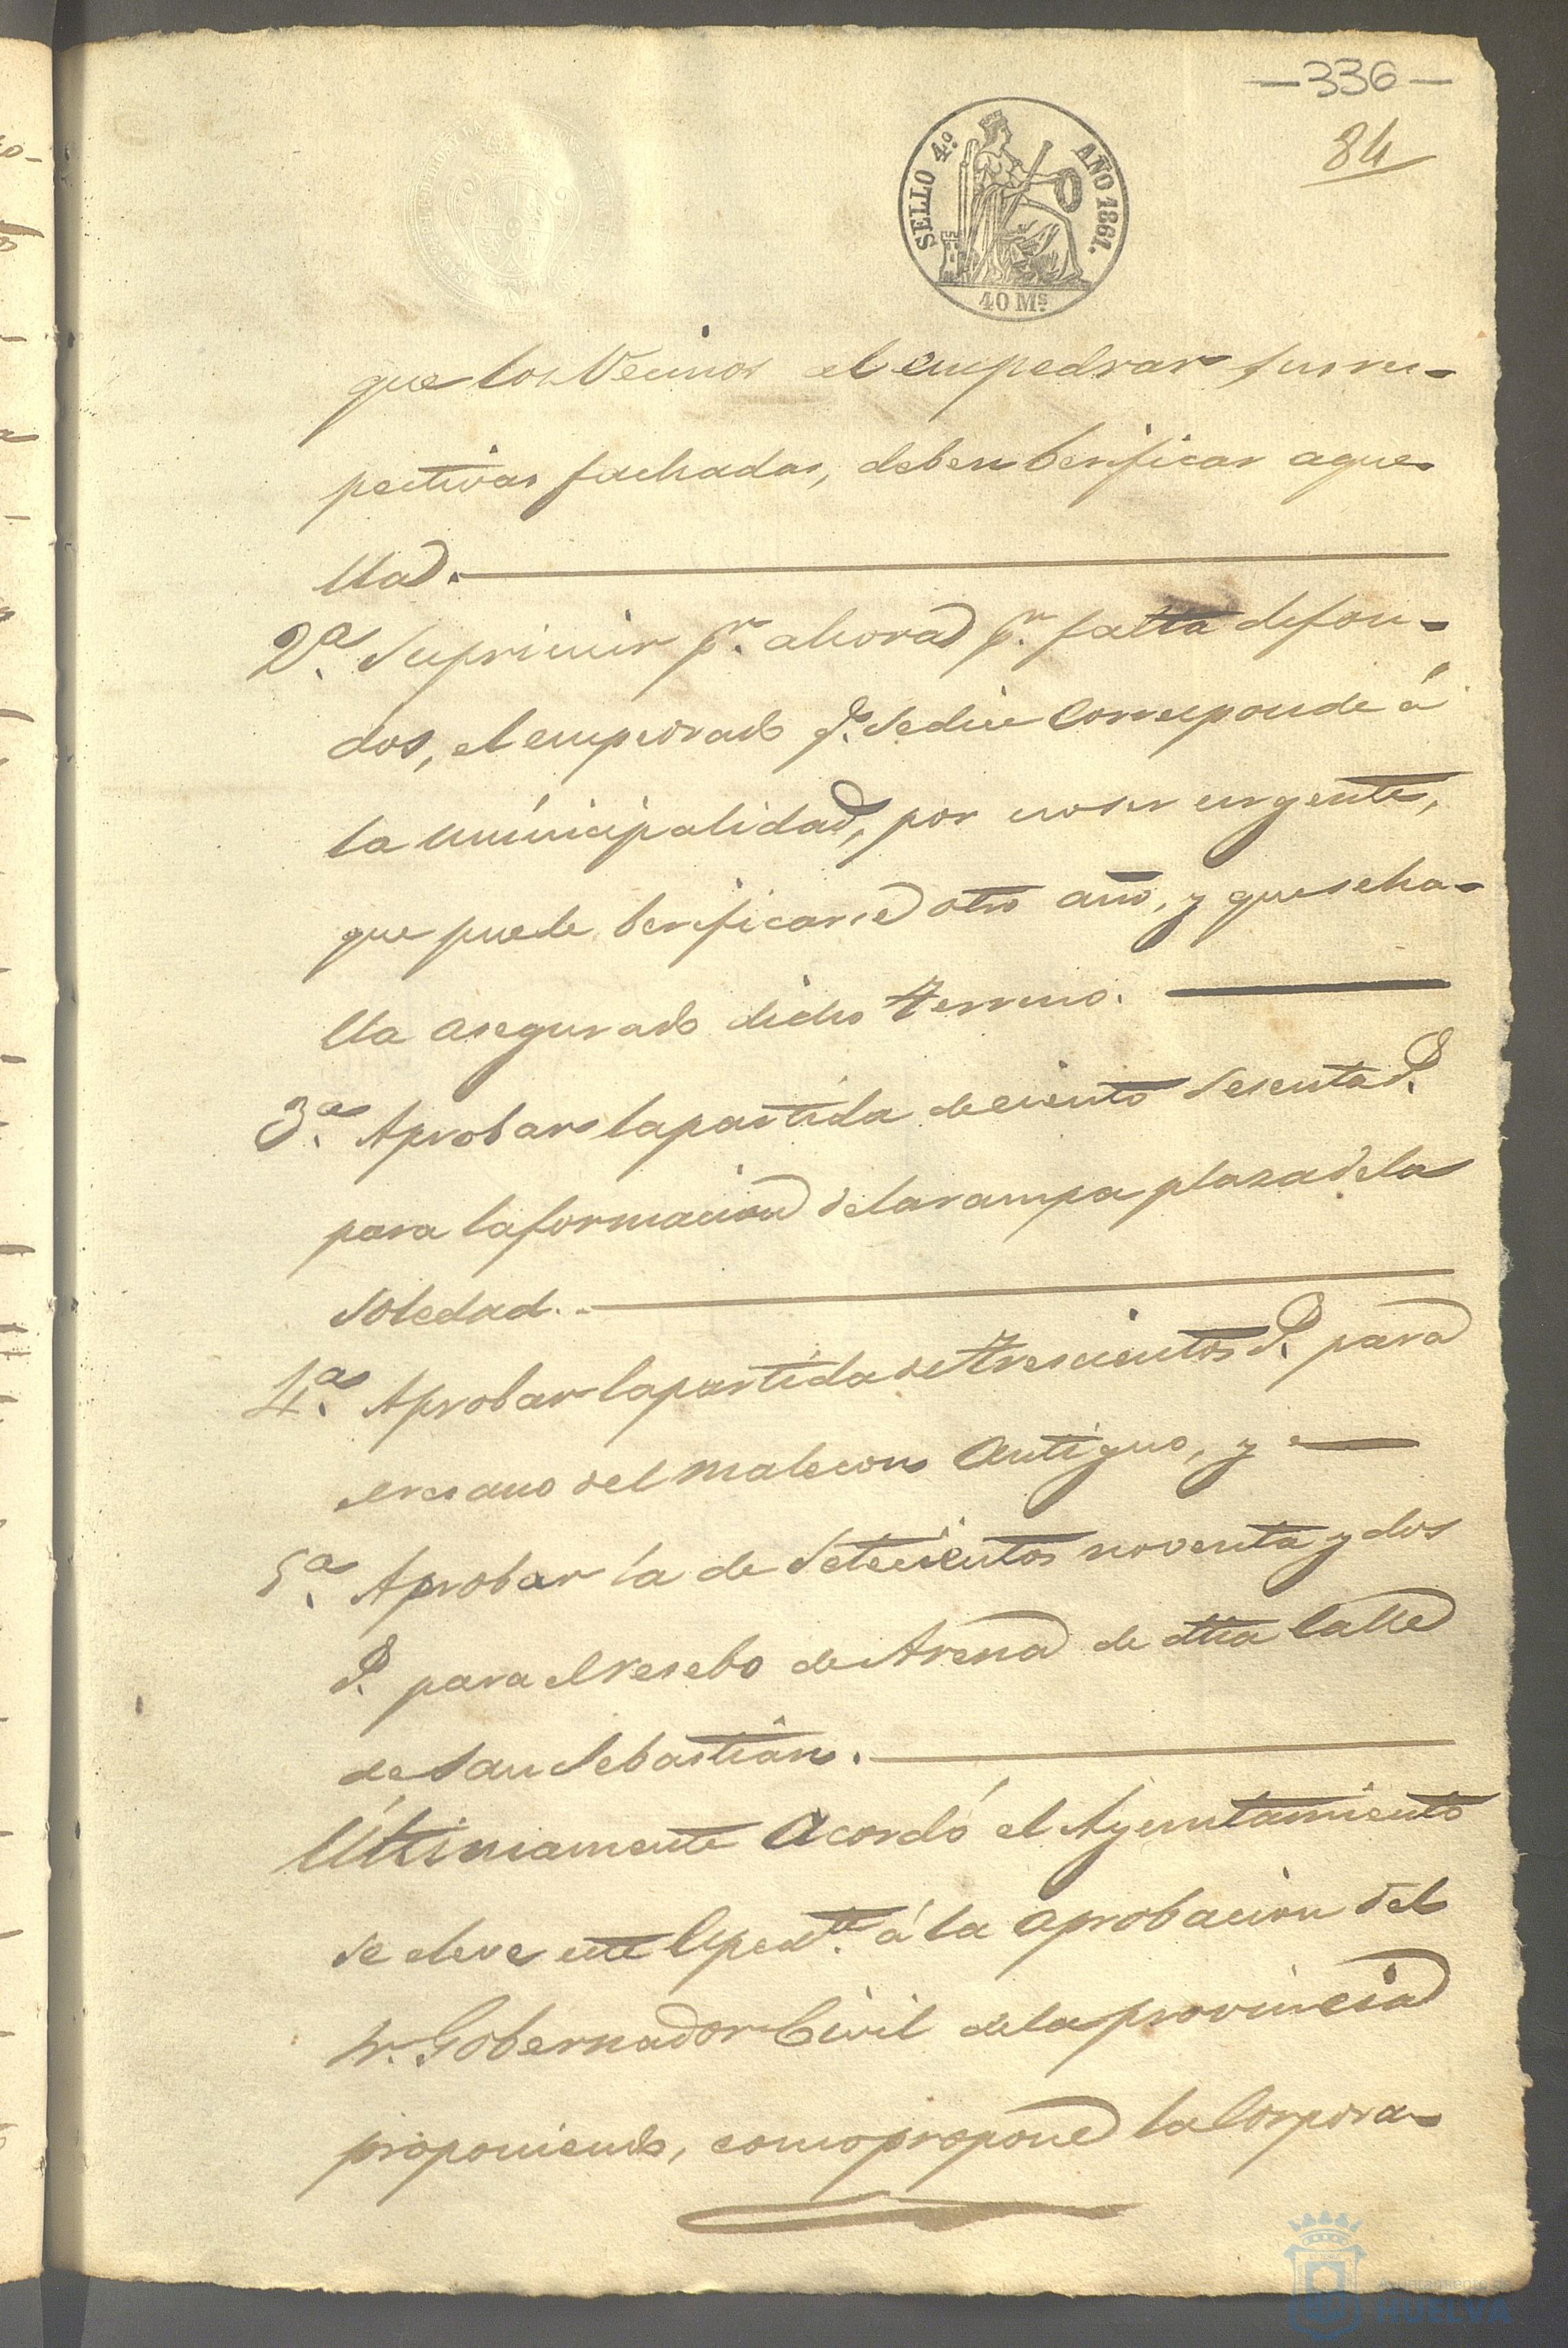 —336—
84
SELLO 4.º AÑO 1861.
40 Ms.
que los Vecinos al empedrar sus res-
pectivas fachadas, deben berificar aque
lla.
2.ª Suprimir pr. ahora pr. falta de fon-
dos, el empedrado q.e se dice corresponde á
la municipalidad, por no ser urgente,
que puede berificarse otro año, y que se ha-
lla asegurado dicho terreno.
3.ª Aprobar la partida de ciento sesenta r.s
para la formacion de la rampa plaza de la
Soledad.
4.ª Aprobar la partida de trescientos r.s para
el resano del malecon antiguo, y
5.ª Aprobar la de setecientos noventa y dos
r.s para el resebo de Arena de dha Calle
de San Sebastián.
Últimamente acordó el Ayuntamiento
se eleve este Espedte. á la aprobacion del
Sr. Gobernador Civil de la provincia
proponiendo, como propone la Corpora-
AYUNTAMIENTO DE
HUELVA